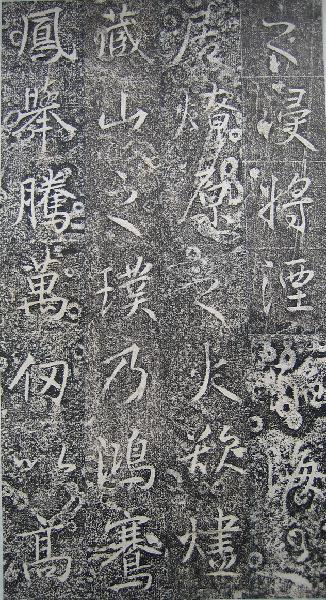 之浸將湮海之
居燎原之火欲燼
藏山之璞乃鴻騫
鳳舉騰萬仞以高